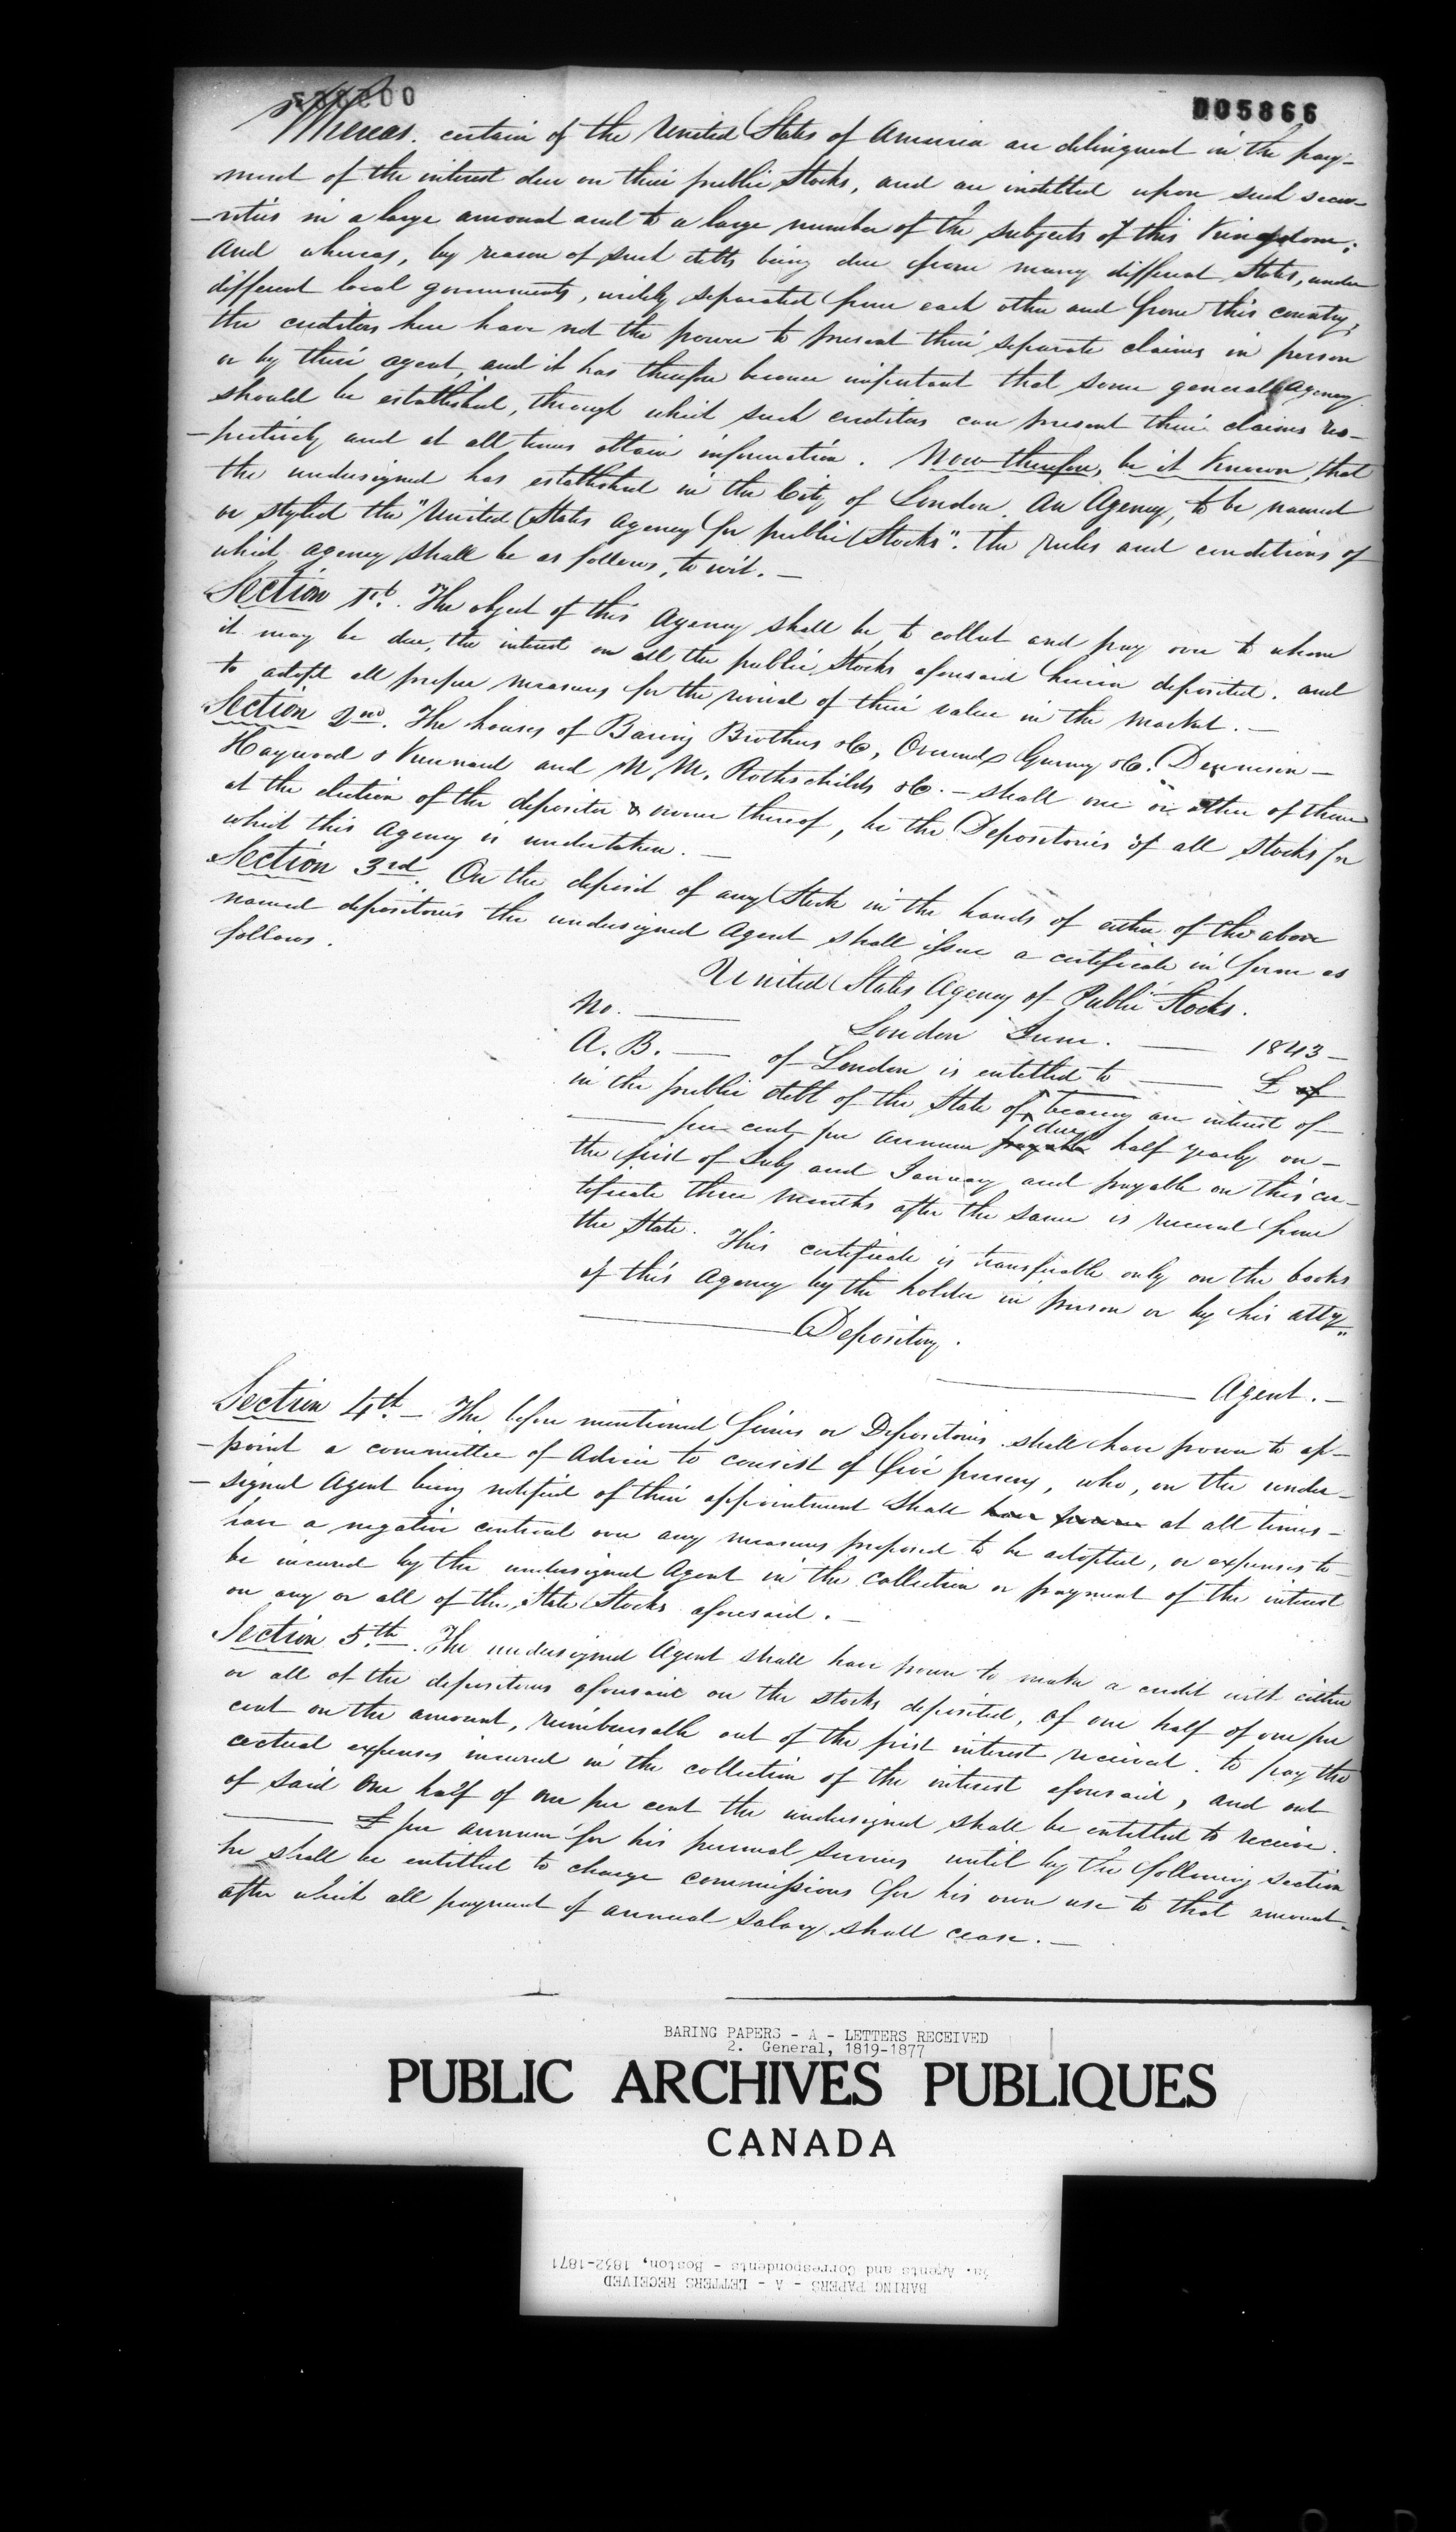 005866
Whereas. certain of the United States of America are delinquent in the pay-
ment of the interest due on their public Stocks, and are indebted upon such secu-
-rities in a large amount and to a large number of the subjects of this Kingdom;
and whereas, by reason of such debts being due from many different States, under
different local governments, widely separated from each other and from this country,
the creditors here have not the power to present their separate claims in person
or by their agent, and it has therefore become important that some general agency
should be established, through which such creditors can present their claims res-
-pectively and at all times obtain information. Now therefore, be it Known, that
the undersigned has established in the City of London. An Agency, to be named
or styled the "United States Agency for public Stocks". the rules and conditions of
which agency shall be as follows, to wit. —
Section 1st. The object of this Agency shall be, to collect and pay over to whom
it may be due, the interest on all the public Stocks aforesaid herein deposited. and
to adopt all proper measures for the revival of their value in the market. —
Section 2nd. The houses of Baring Brothers & Co, Overend Gurney & Co. Dennison —
Haywood & Kennard and N. M. Rothschilds & Co. — shall one or other of them
at the election of the depositor & owner thereof, be the Depositories of all stocks for
which this Agency is undertaken. —
Section 3rd. On the deposit of any Stock in the hands of either of the above
named depositories the undersigned Agent shall issue a certificate in form as
follows.
United States Agency of Public Stocks.
No. —— London June. — 1843 —
A. B. — of London is entitled to —— £ of
in the public debt of the State of, bearing an interest of —
—— per cent per annum payable due half yearly on —
the first of July and January and payable on this cer-
tificate three months after the same is received from
the State. This certificate is transferable only on the books
of this Agency by the holder in person or by his atty.
—— Depository.
—— Agent. —
Section 4th. — The before mentioned firms or Depositories shall have power to ap-
-point a committee of Advice to consist of five persons, who, on the under-
-signed Agent being notified of their appointment shall have power at all times —
have a negative control over any measures proposed to be adopted, or expenses to
be incured by the undersigned Agent in the collection or payment of the interest
on any or all of the State Stocks aforesaid. —
Section 5.th. The undersigned Agent shall have power to make a credit with either
or all of the depositories aforesaid on the stocks deposited, of one half of one per
cent on the amount, reimbursable out of the first interest received. to pay the
actual expenses incured in the collection of the interest aforesaid, and out
of said one half of one per cent the undersigned shall be entitled to receive.
—— £ per annum for his personal services until by the following section
he shall be entitled to charge commissions for his own use to that amount.
after which all payment of annual salary shall cease. —
BARING PAPERS - A - LETTERS RECEIVED
2. General, 1819-1877
PUBLIC ARCHIVES PUBLIQUES
CANADA
Agents and Correspondents - Boston, 1832-1871
BARING PAPERS - A - LETTERS RECEIVED